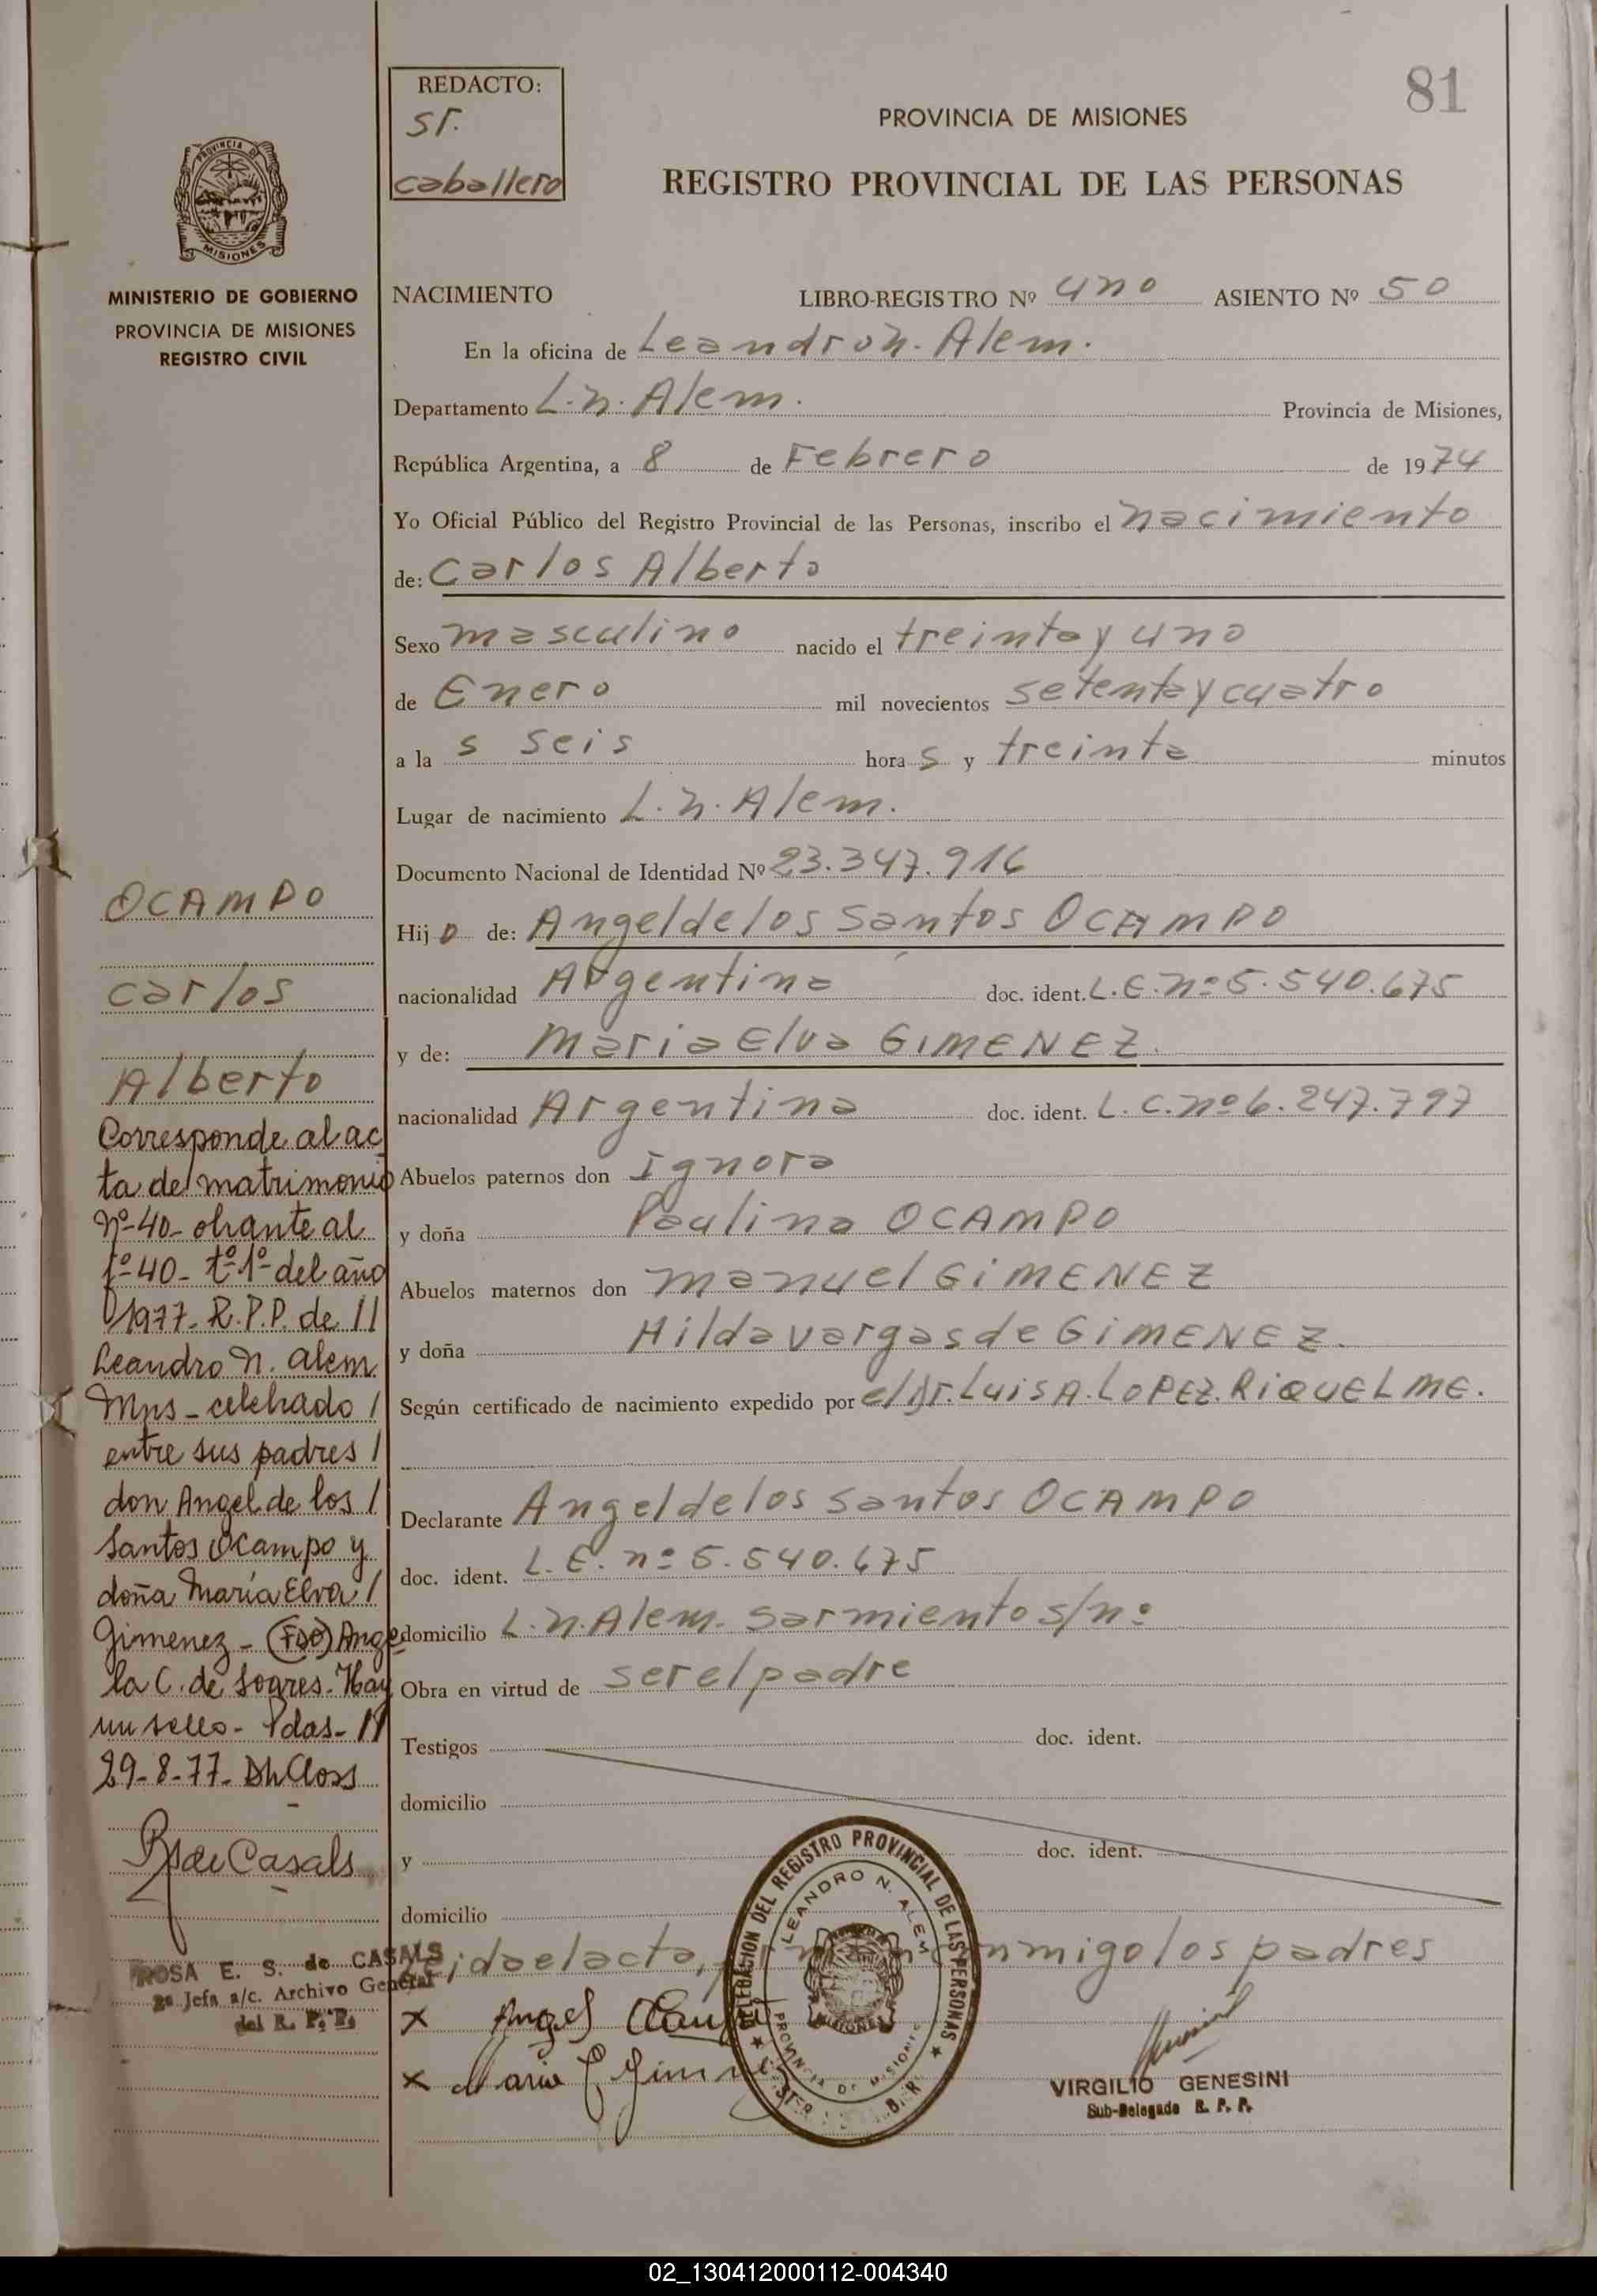 81
REDACTO:
sr.
caballero
PROVINCIA DE MISIONES
REGISTRO PROVINCIAL DE LAS PERSONAS
PROVINCIA DE
MISIONES
MINISTERIO DE GOBIERNO
PROVINCIA DE MISIONES
REGISTRO CIVIL
NACIMIENTO LIBRO-REGISTRO Nº uno ASIENTO Nº 50
En la oficina de Leandro n. Alem.
Departamento L. n. Alem. Provincia de Misiones,
República Argentina, a 8 de Febrero de 1974
Yo Oficial Público del Registro Provincial de las Personas, inscribo el nacimiento
de: Carlos Alberto
Sexo masculino nacido el treinta y uno
de Enero mil novecientos setenta y cuatro
a la s seis hora s y treinta minutos
Lugar de nacimiento L. n. Alem.
Documento Nacional de Identidad Nº 23.347.916
Hij o de: Angel de los Santos OCAMPO
nacionalidad Argentina doc. ident. L. E. nº 5.540.675
y de: Maria Elva GIMENEZ.
nacionalidad Argentina doc. ident. L. C. nº 6.247.797
Abuelos paternos don Ignora
y doña Paulina OCAMPO
Abuelos maternos don Manuel GIMENEZ
y doña Hilda vargas de GIMENEZ.
Según certificado de nacimiento expedido por el Dr. Luis A. LOPEZ. RIQUELME.
Declarante Angel de los Santos OCAMPO
doc. ident. L. E. nº 5.540.675
domicilio L. n. Alem. sarmiento s/nº
Obra en virtud de ser el padre
Testigos doc. ident.
domicilio
y doc. ident.
domicilio
Leida el acta, conmigo los padres
x Angel
x Maria E Gimenez
DELEGACION DEL REGISTRO PROVINCIAL DE LAS PERSONAS
LEANDRO N. ALEM
PROVINCIA DE MISIONES
MISIONES
VIRGILIO GENESINI
Sub-Delegado R. P. P.
OCAMPO
Carlos
Alberto
Corresponde al ac
ta de matrimonio
Nº 40- obrante al
fº 40- tº 1º del año
1977- R.P.P. de //
Leandro N. Alem
Mns - celebrado /
entre sus padres /
don Angel de los /
Santos Ocampo y
doña María Elva /
Gimenez - (FDO) Ange
la C. de Soares. Hay
un sello - Pdas-
29-8-77-
R de Casals
ROSA E. S. de CASALS
2ª Jefa a/c. Archivo General
del R. P. P.
02_130412000112-004340